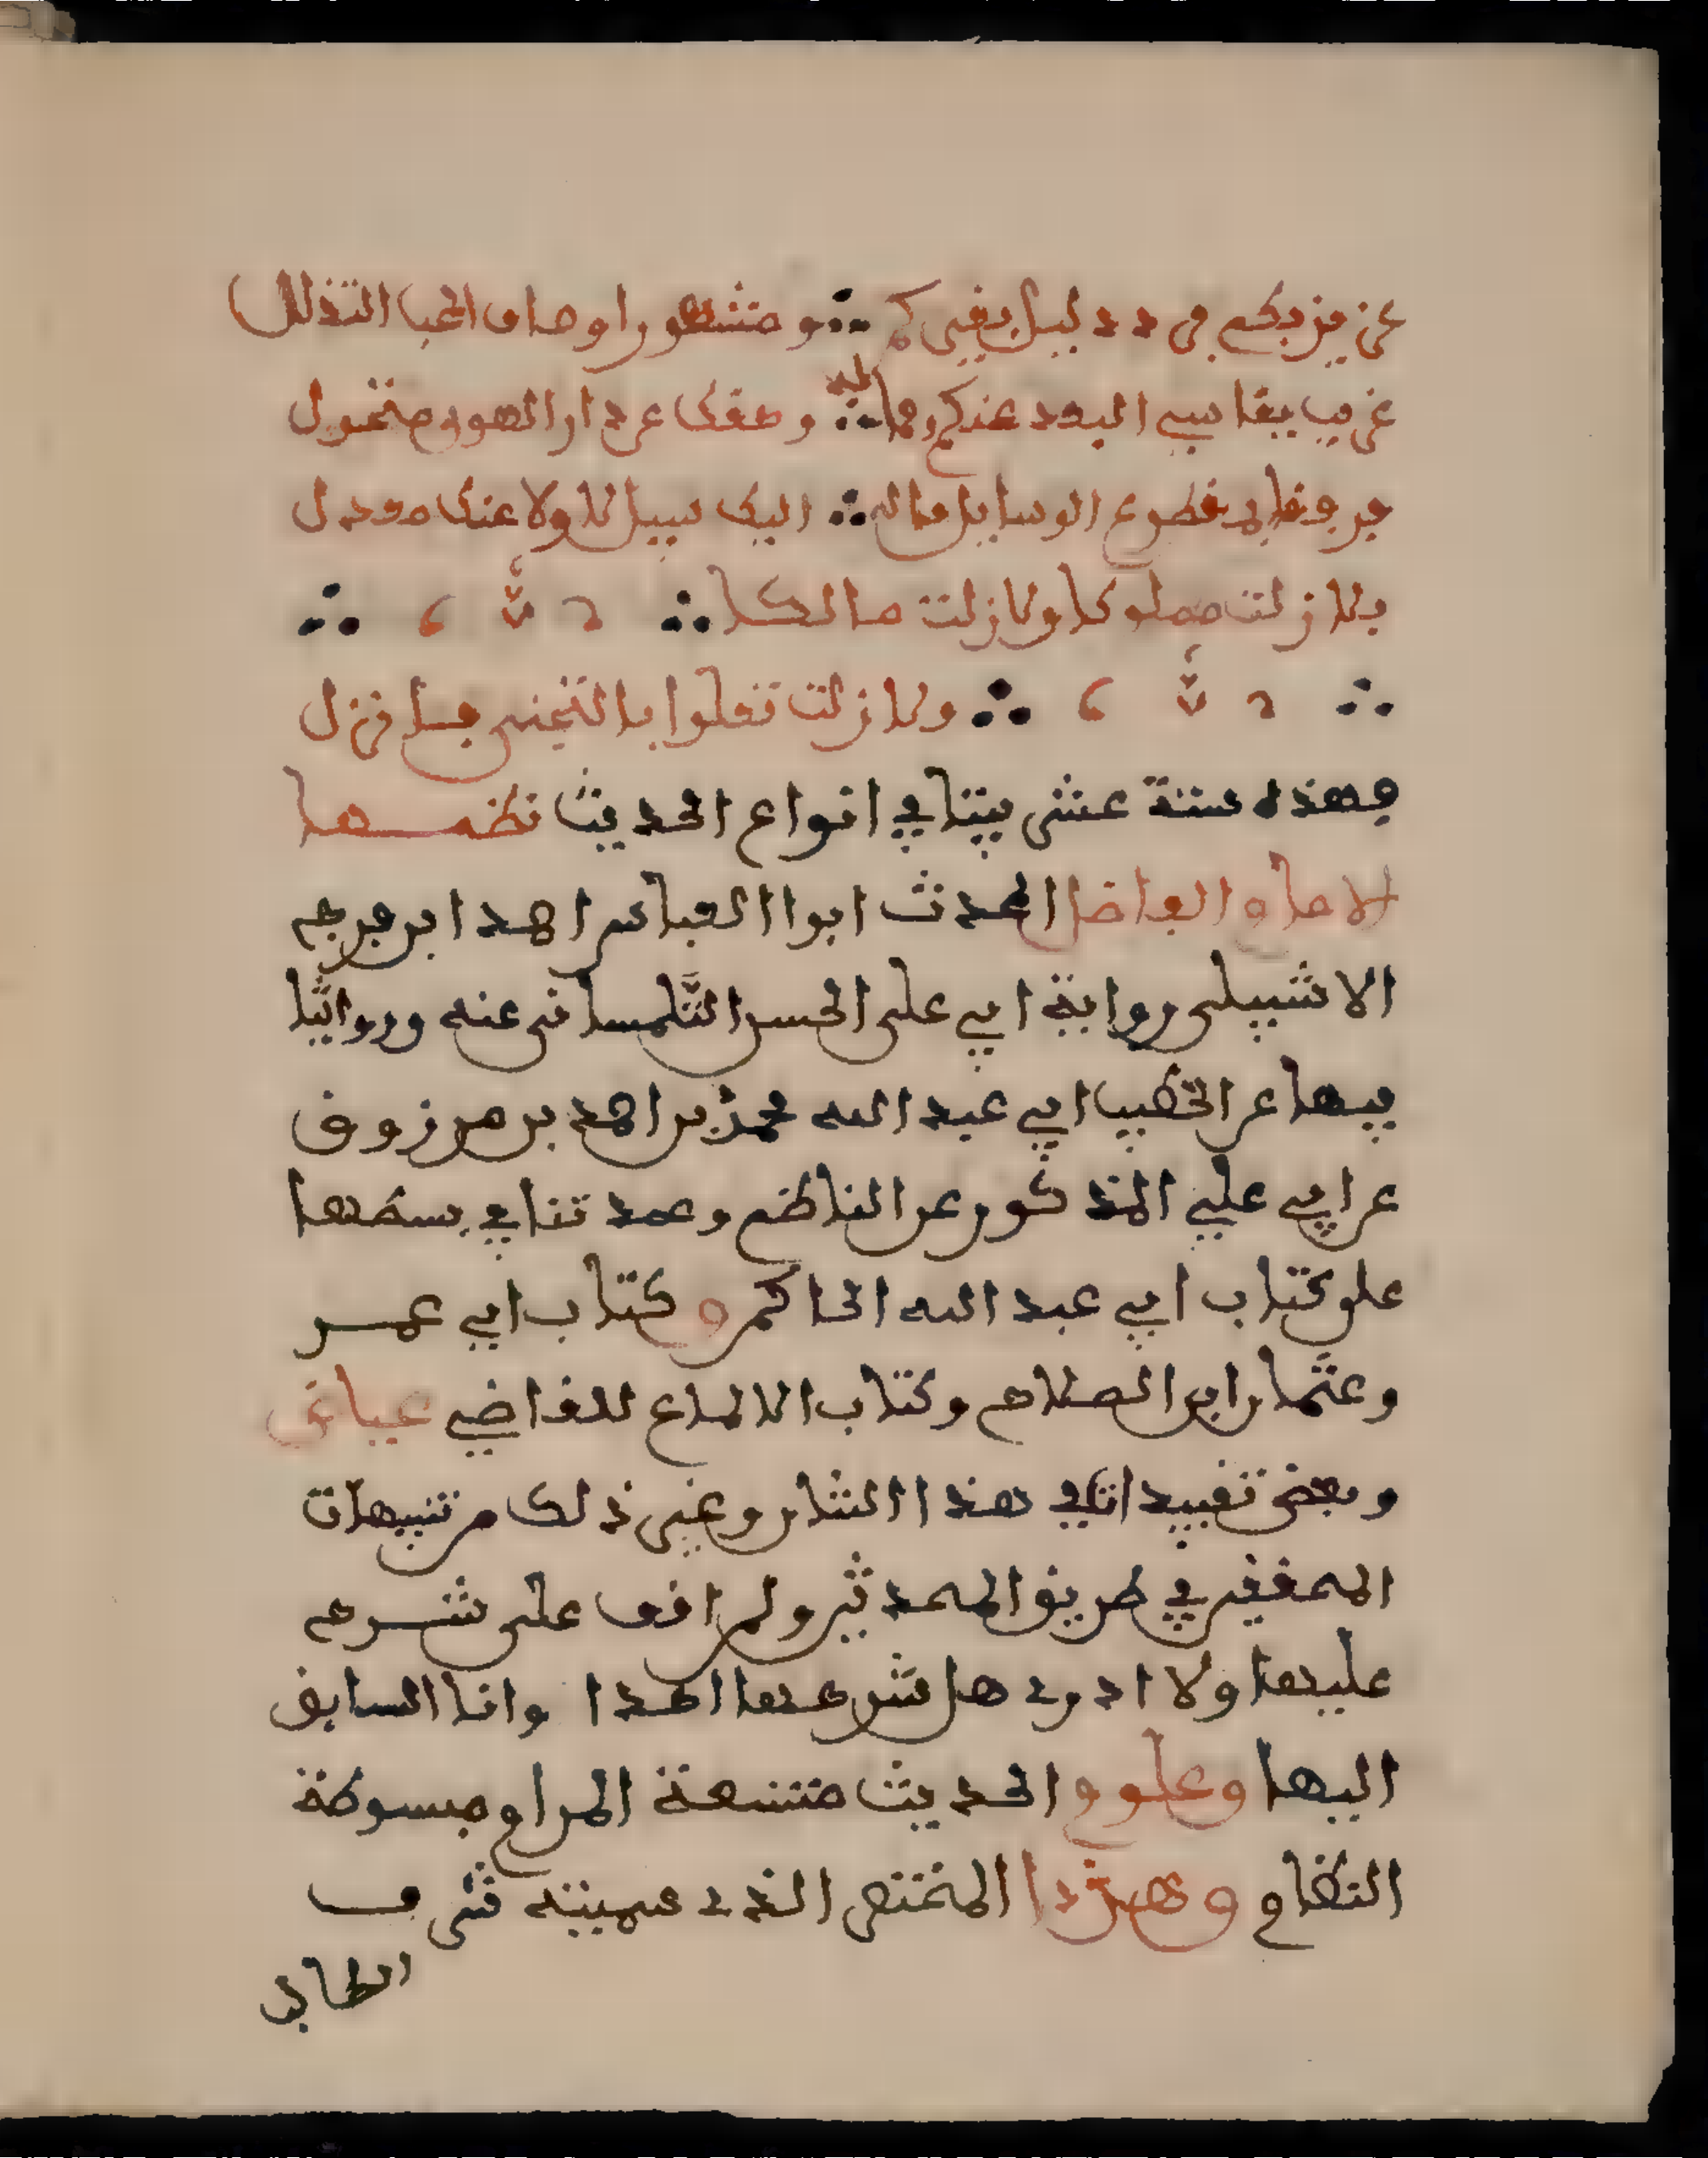 عزيز بكم صب ذليل بغيركم ∴ ومشهور اوصاف المحب التذلل
غريب يقاسي البعد عنكم وماله ∴ وحقك عن دار الهوى متحول
فرفقا بمقطوع الوسايل ماله ∴ اليك سبيل لا ولا عنك معدل
فلا زلت مملوكا ولا زلت مالكا ∴ ∴
∴ ∴ ولا زلت تعلوا بالتجني فانزل
فهذه ستة عشر بيتا في انواع الحديث نظمها
الامام الفاضل المحدث ابوا العباس احمد ابن فرح
الاشبيلي رواية ابي علي الحسن التلمساني عنه وروايتنا
فيها عن الخطيب ابي عبد الله محمد بن احمد بن مرزوق
عن ابي علي المذكور عن الناظم وعمدتنا في بسطها
على كتاب ابي عبد الله الحاكم وكتاب ابي عمر
وعثمان ابن الصلاح وكتاب الالماع للقاضي عياض
وبعض تقييداتي في هذا الشان وغير ذلك من تنبيهات
المحققين في طريق المحدثين ولم اقف على شرح
عليها ولا ادري هل شرحها احدا وانا السابق
اليها وعلوم الحديث متسعة المرام مبسوطة
النظام وهذا المختصر الذي سميته شرف
الطالب